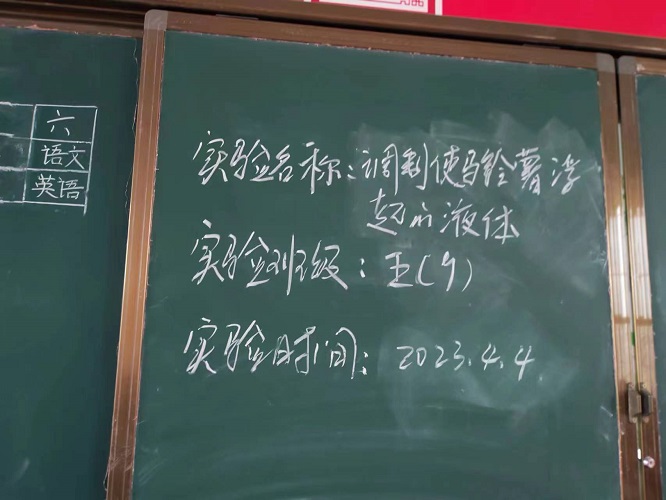 六
语文
英语
实验名称:调制使马铃薯浮
起的液体
实验班级:五(9)
实验时间:2023.4.4